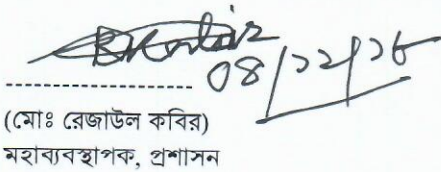 ০৪/১২/১৮
---------------------
(মোঃ রেজাউল কবির)
মহাব্যবস্থাপক, প্রশাসন